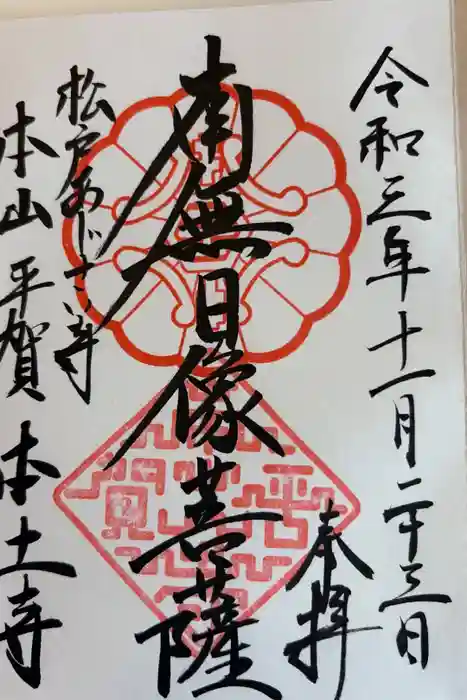 令和三年十一月二十三日
奉拝
南無日像菩薩
松戸あじさい寺
本山平賀本土寺